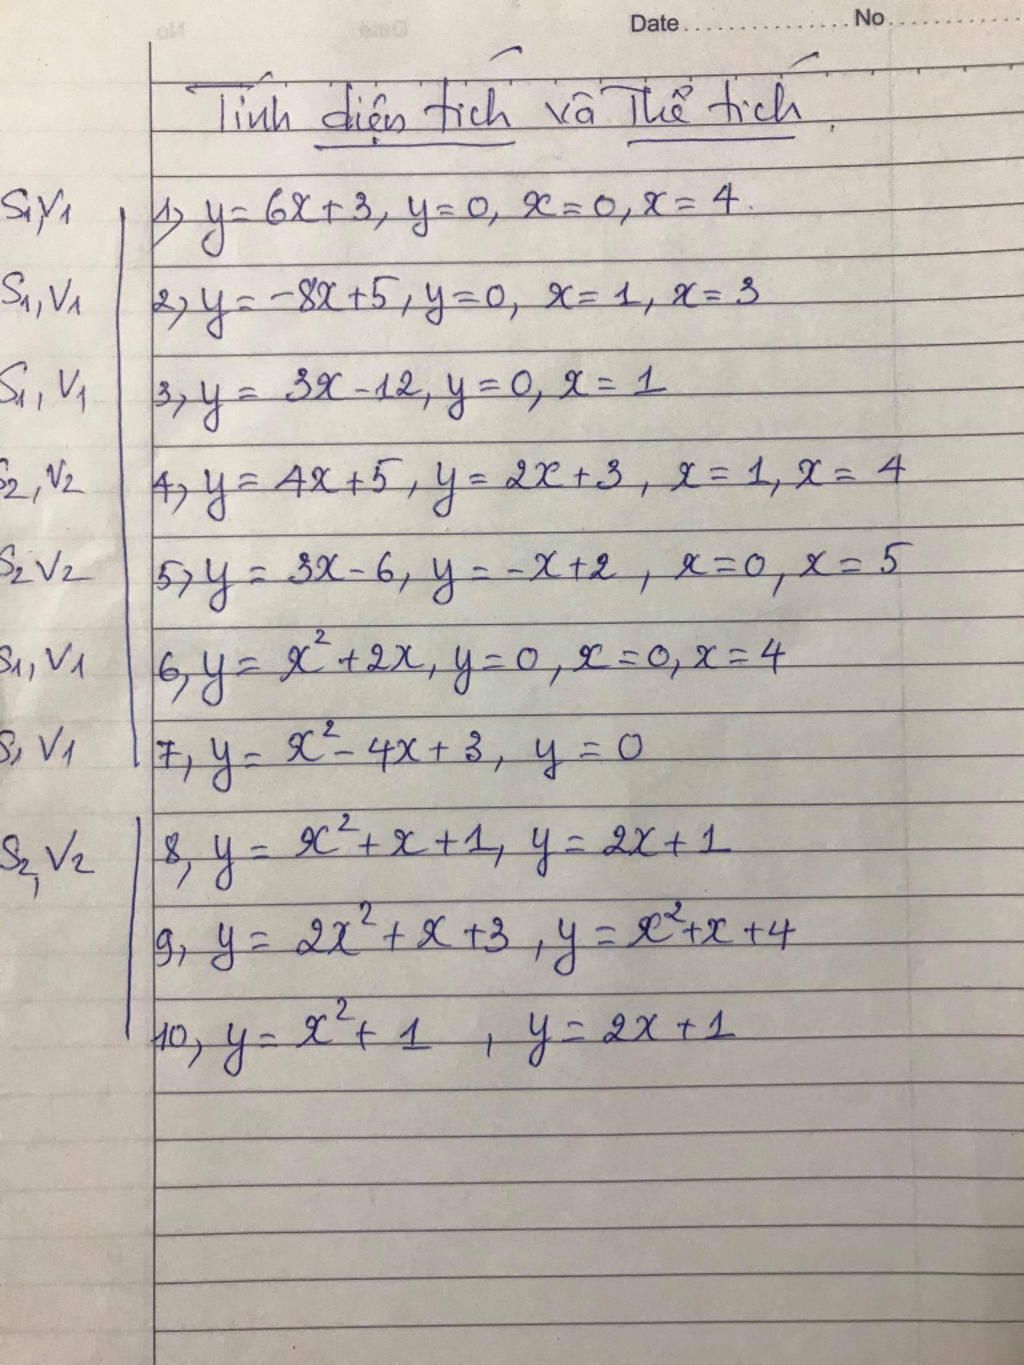 Date............... No...............
Tính diện tích và Thể tích.
S1,V1 1, y = 6x + 3, y = 0, x = 0, x = 4.
S1, V1 2, y = -8x + 5, y = 0, x = 1, x = 3
S1, V1 3, y = 3x - 12, y = 0, x = 1
S2, V2 4, y = 4x + 5, y = 2x + 3, x = 1, x = 4
S2 V2 5, y = 3x - 6, y = -x + 2, x = 0, x = 5
S1, V1 6, y = x² + 2x, y = 0, x = 0, x = 4
S, V1 7, y = x² - 4x + 3, y = 0
S2, V2 8, y = x² + x + 1, y = 2x + 1
9, y = 2x² + x + 3, y = x² + x + 4
10, y = x² + 1, y = 2x + 1